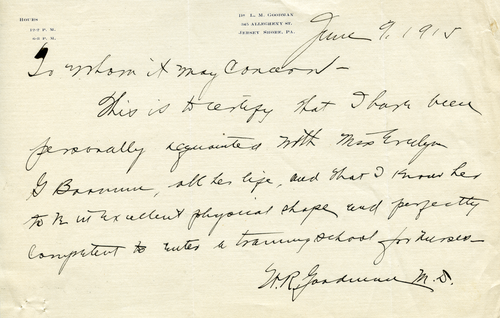 HOURS
P. M.
P. M.
Dr L. M. GOODMAN
ALLEGHENY ST.
JERSEY SHORE, PA.
June 9, 1915
To Whom it may Concern –
This is to certify that I have been
personally acquainted with Miss Evelyn
G , all her life, and that I know her
to be in excellent physical shape and perfectly
competent to enter a training school for nurses –
W. R. Goodman M. D.